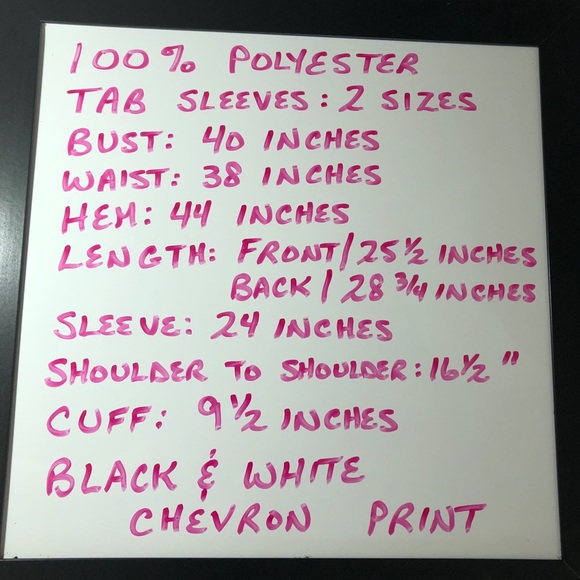 100% POLYESTER
TAB SLEEVES: 2 SIZES
BUST: 40 INCHES
WAIST: 38 INCHES
HEM: 44 INCHES
LENGTH: FRONT/25 1/2 INCHES
BACK/28 3/4 INCHES
SLEEVE: 24 INCHES
SHOULDER TO SHOULDER: 16 1/2"
CUFF: 9 1/2 INCHES
BLACK & WHITE
CHEVRON PRINT